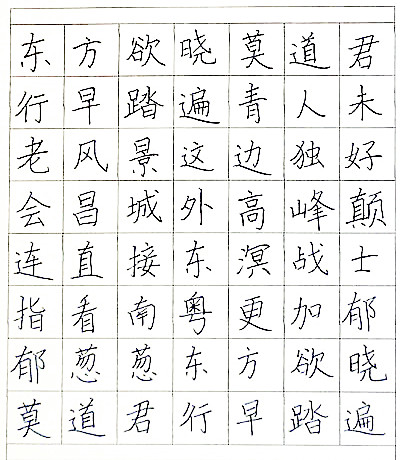 东方欲晓莫道君
行早踏遍青人未
老风景这边独好
会昌城外高峰颠
连直接东溟战士
指看南粤更加郁
郁葱葱东方欲晓
莫道君行早踏遍